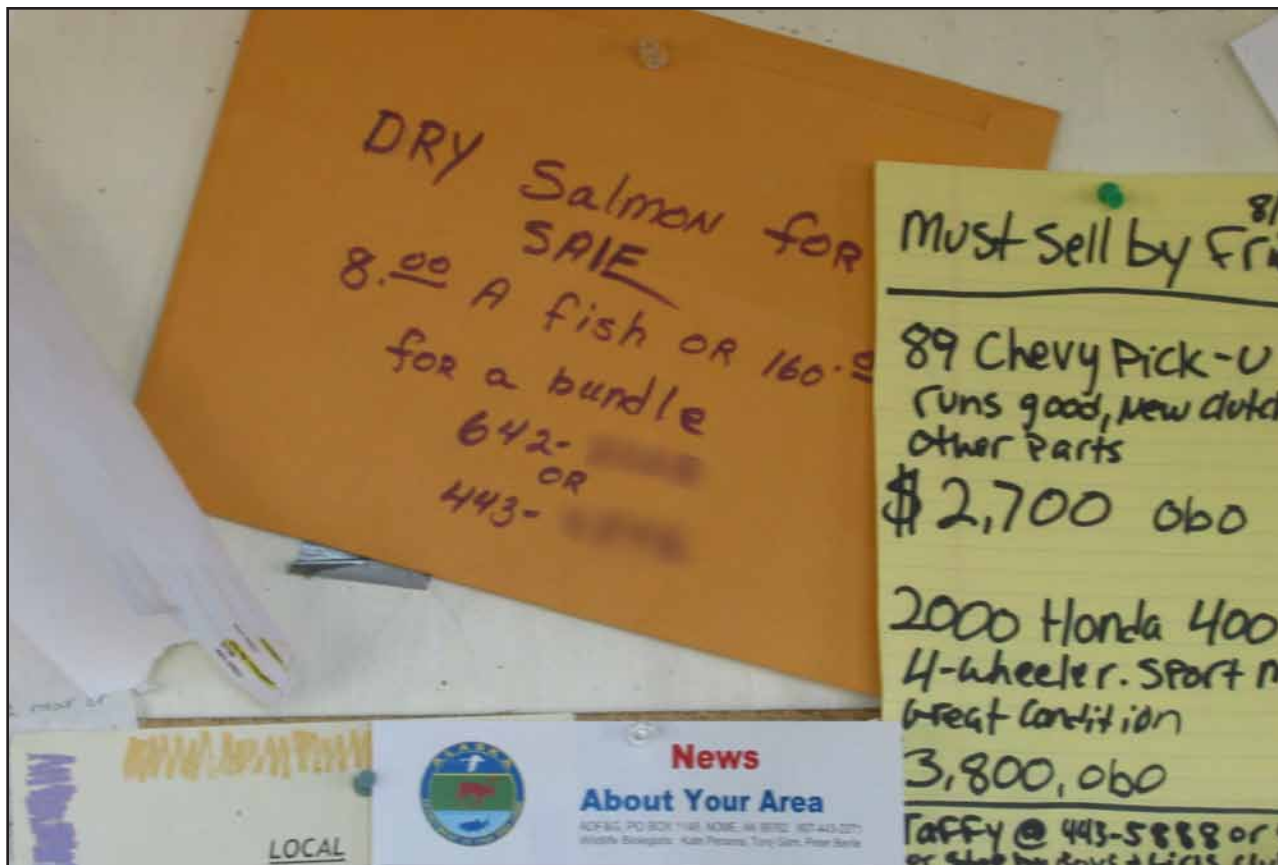 DRY Salmon for
SALE
8.00 A fish OR 160.
for a bundle
642-
OR
443-
8/
Must Sell by Fri
89 Chevy Pick-U
runs good, New clutc
other Parts
$2,700 obo
2000 Honda 400
4-wheeler. Sport
Great Condition
3,800, obo
Taffy @ 443-5888 or
ALASKA
News
About Your Area
ADF&G, PO BOX 1148, NOME, AK 99762 907-443-2271
Wildlife Biologists: Kate Persons, Tony Gorn, Peter Bente
LOCAL